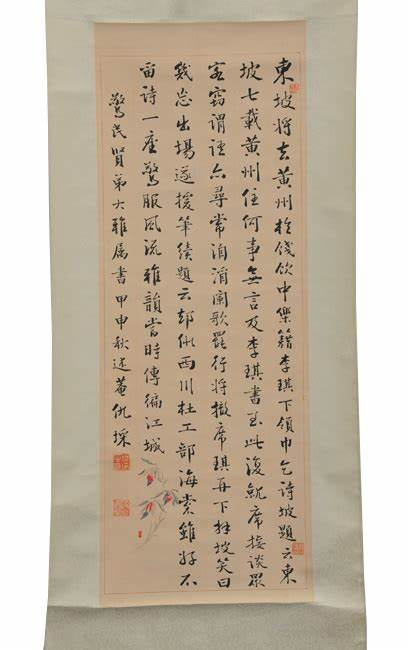 東坡將去黃州於餞飲中樂籍李琪下領巾乞詩坡題云東
坡七載黃州住何事無言及李琪書至此復就席接談眾
客竊謂語亦尋常洎酒闌歌罷行將撤席琪再下拜坡笑曰
幾忘出場遂援筆續題云却似西川杜工部海棠雖好不
留詩一座驚服風流雅韻當時傳徧江城
驚民賢弟大雅屬書甲申秋述菴仇埰